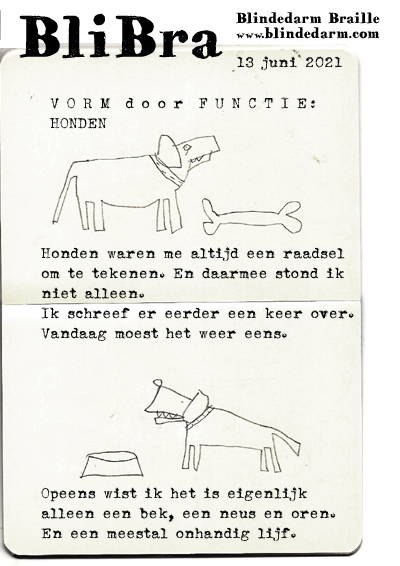 BliBra
Blindedarm Braille
www.blindedarm.com
13 juni 2021
VORM door FUNCTIE:
HONDEN
Honden waren me altijd een raadsel
om te tekenen. En daarmee stond ik
niet alleen.
Ik schreef er eerder een keer over.
Vandaag moest het weer eens.
Opeens wist ik het is eigenlijk
alleen een bek, een neus en oren.
En een meestal onhandig lijf.